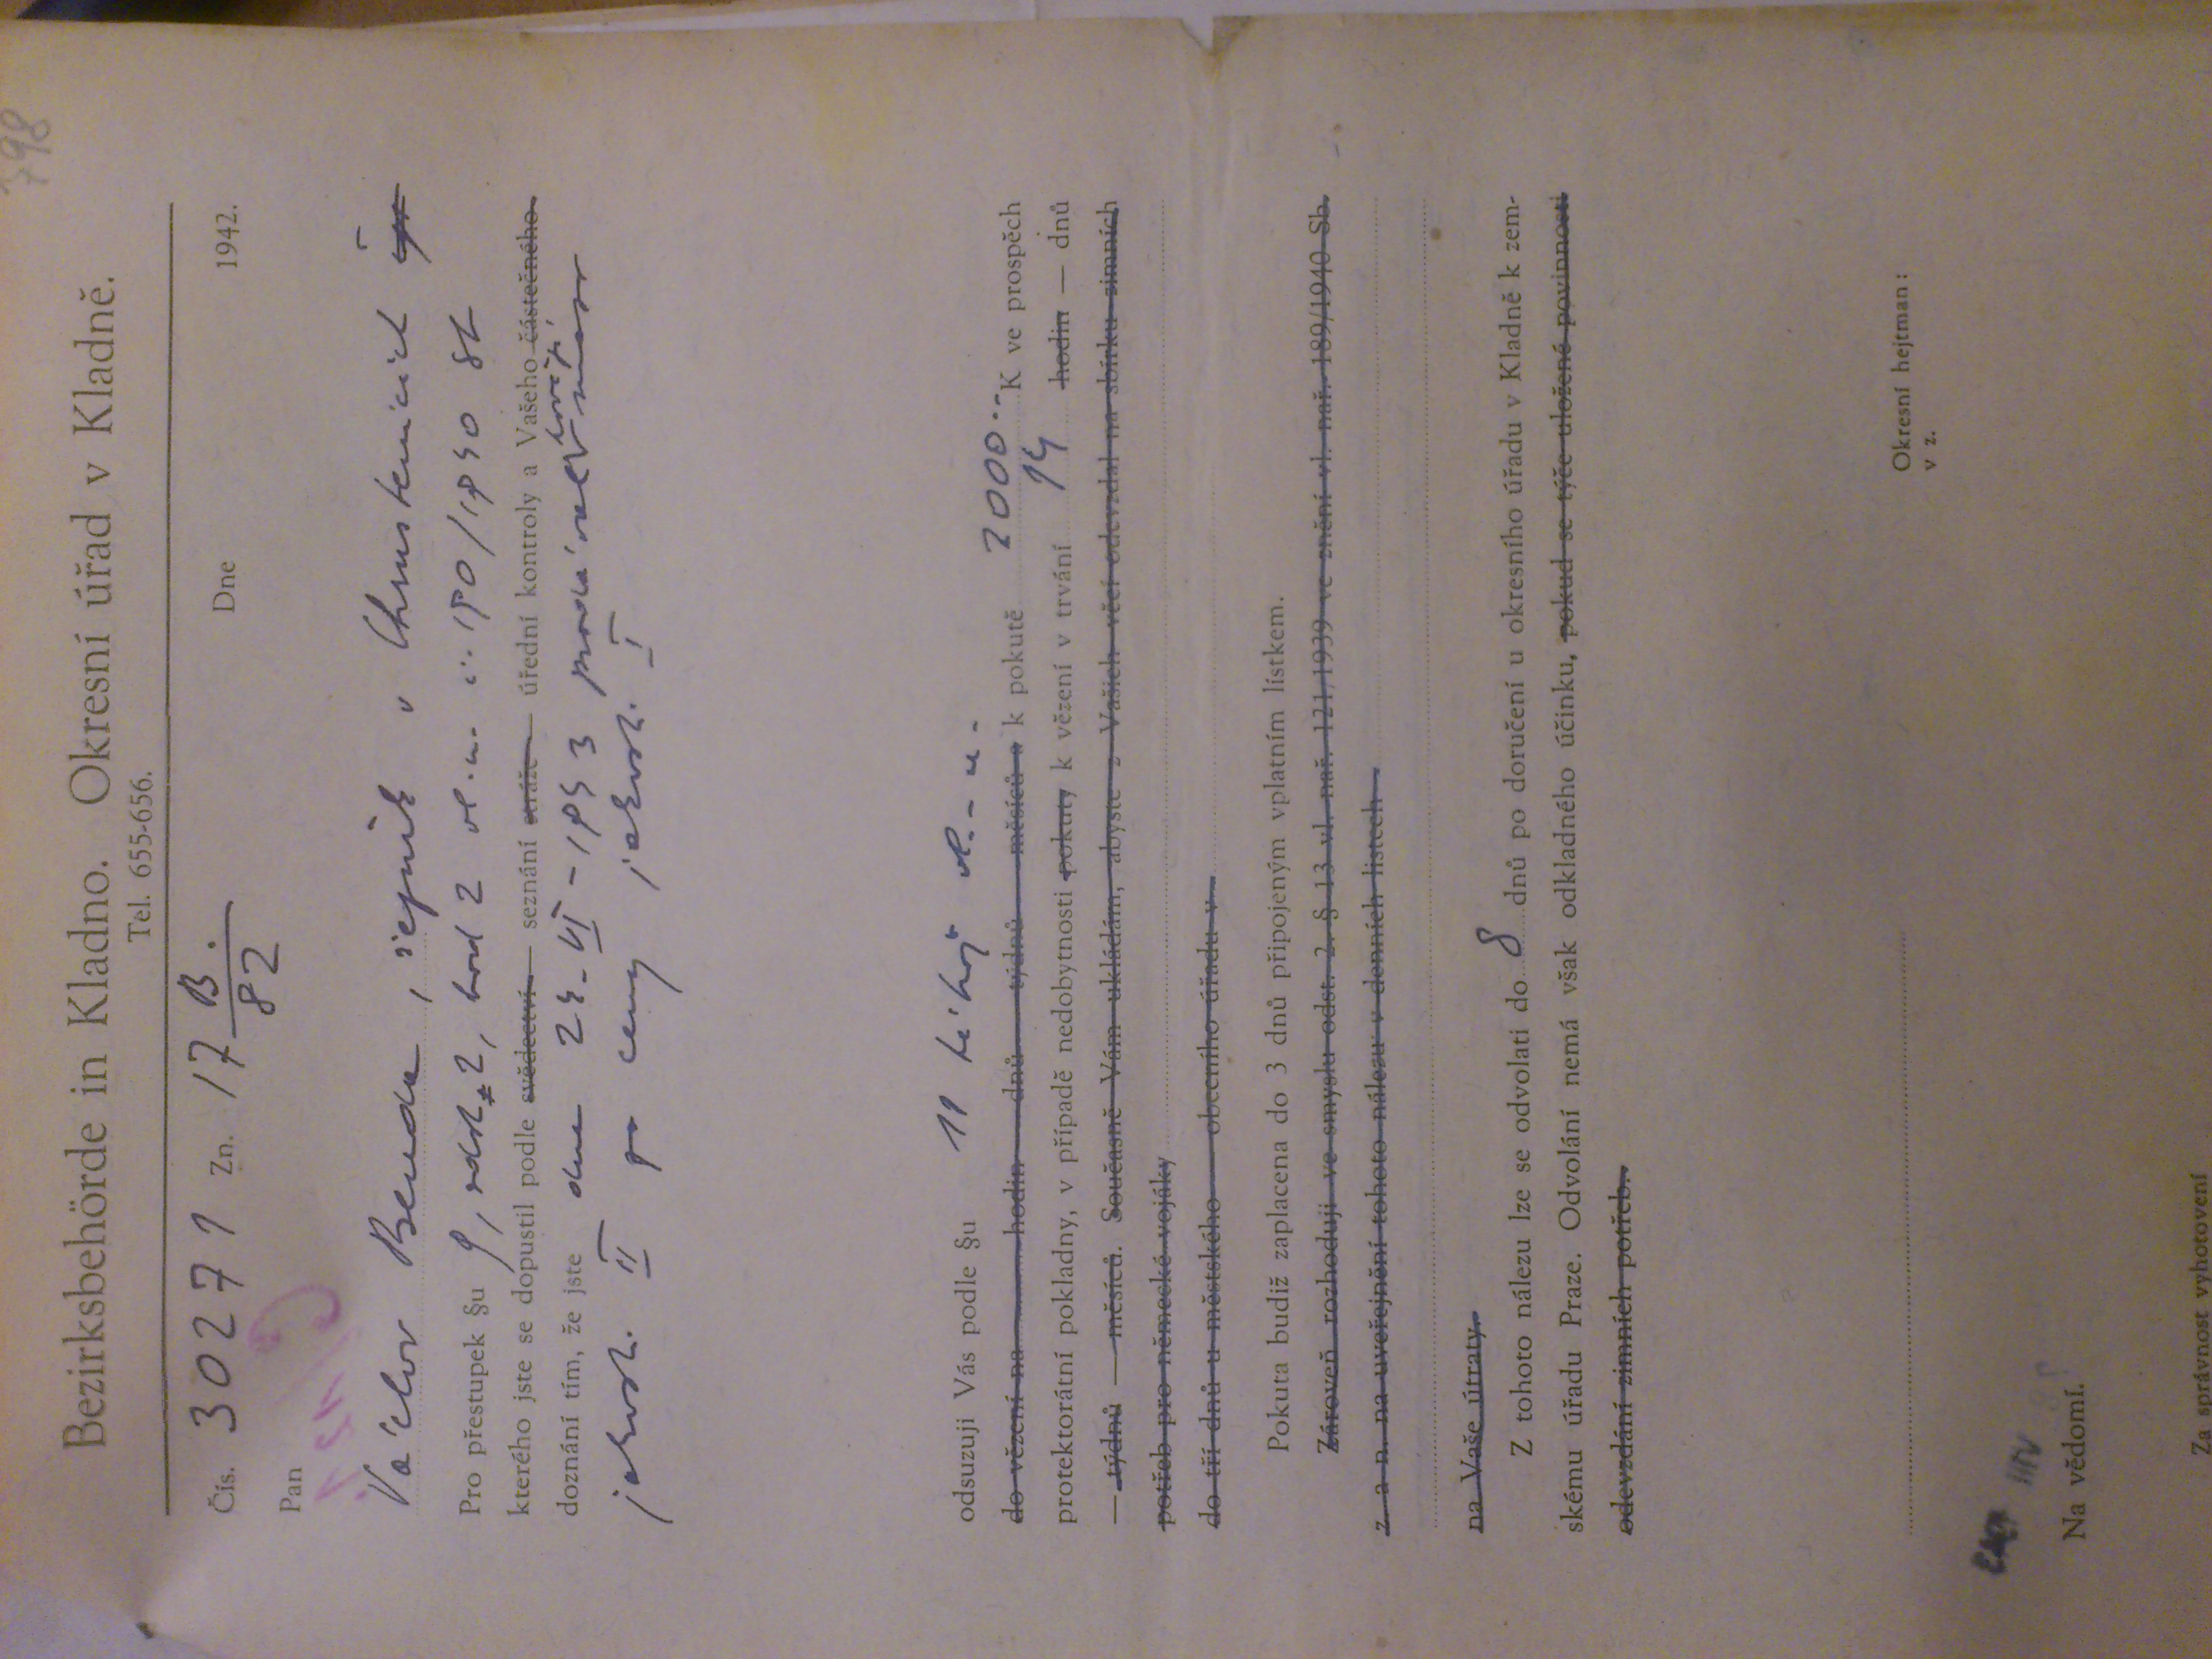 798
Bezirksbehörde in Kladno. Okresní úřad v Kladně.
Tel. 655-656.
Čís. 30271 Zn. 17 B. / 82 Dne 1942.
Pan
Václav Benda, řezník v Chrustenicích
Pro přestupek §u 9, odst. 2, bod 2 vl. n. č. 190/1940 Sb
kterého jste se dopustil podle svědectví — seznání stráže — úřední kontroly a Vašeho částečného
doznání tím, že jste dne 24. VI - 1943 prodával hovězí maso
jakosti II za ceny jakosti I
odsuzuji Vás podle §u 11 téhož vl. n.
do vězení na hodin dnů týdnů měsíců a k pokutě 2000.-- K ve prospěch
protektorátní pokladny, v případě nedobytnosti pokuty k vězení v trvání 14 hodin — dnů
— týdnů — měsíců. Současně Vám ukládám, abyste z Vašich věcí odevzdal na sbírku zimních
potřeb pro německé vojáky
do tří dnů u městského — obecního úřadu v
Pokuta budiž zaplacena do 3 dnů připojeným vplatním lístkem.
Zároveň rozhoduji ve smyslu odst. 2. § 13 vl. nař. 121/1939 ve znění vl. nař. 189/1940 Sb.
z. a n. na uveřejnění tohoto nálezu v denních listech
na Vaše útraty.
Z tohoto nálezu lze se odvolati do 8 dnů po doručení u okresního úřadu v Kladně k zem-
skému úřadu Praze. Odvolání nemá však odkladného účinku, pokud se týče uložené povinnosti
odevzdání zimních potřeb.
Okresní hejtman :
v z.
Na vědomí.
Za správnost vyhotovení